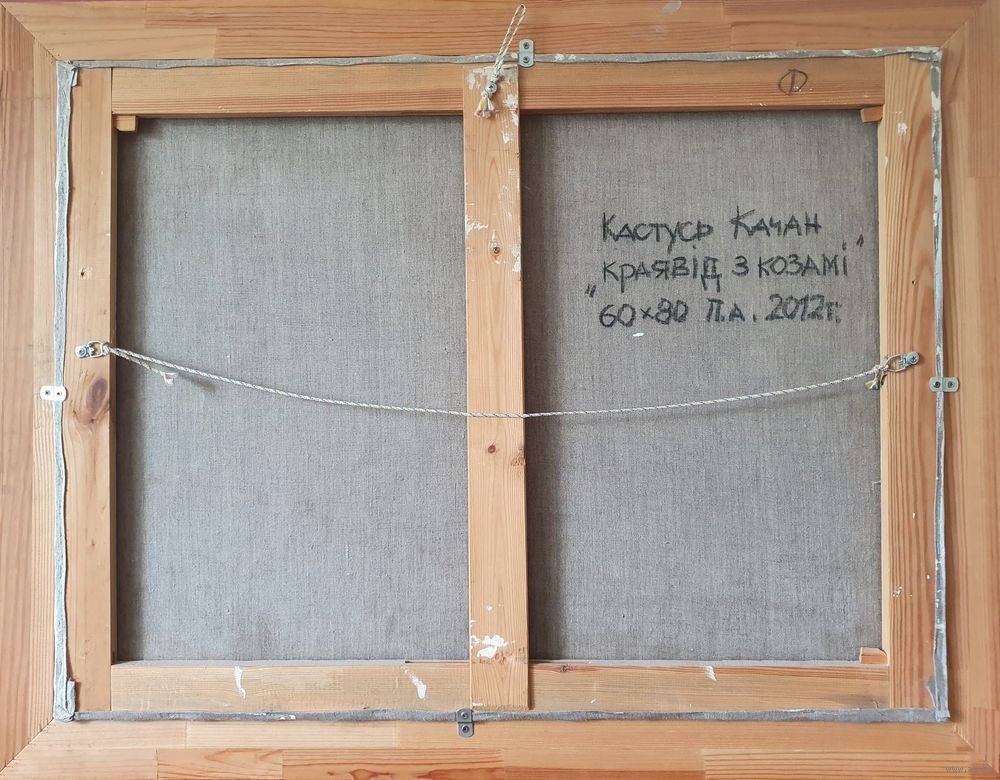 Кастусь Качан
„краявід з козамі"
60×80 П.а. 2012г.